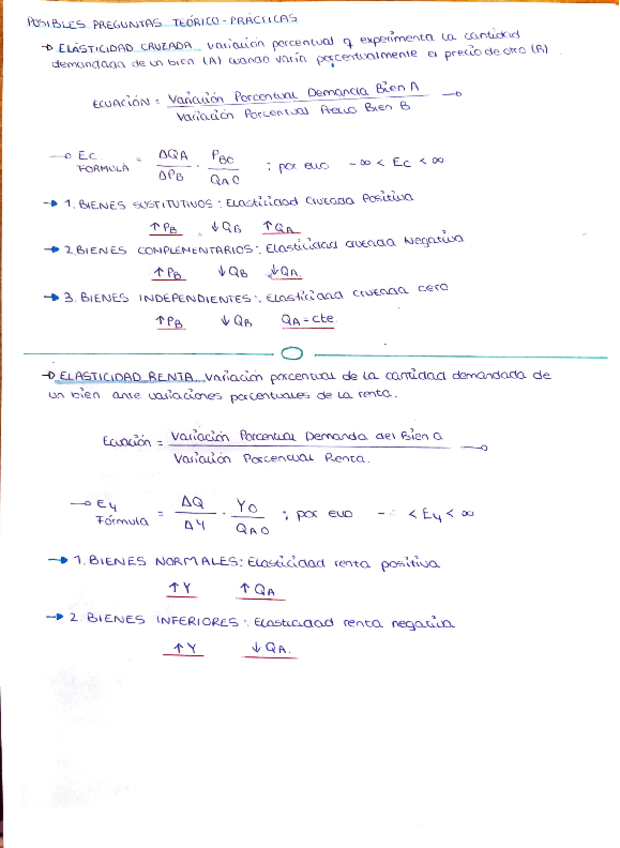 POSIBLES PREGUNTAS TEÓRICO-PRÁCTICAS
→ ELASTICIDAD CRUZADA variación porcentual q experimenta la cantidad
demandada de un bien (A) cuando varía porcentualmente el precio de otro (B).
ECUACIÓN = Variación Porcentual Demanda Bien A
Variación Porcentual Precio Bien B
→ Ec FÓRMULA = ΔQA / ΔPB · PB0 / QA0 ; por ello -∞ < Ec < ∞
→ 1. BIENES SUSTITUTIVOS: Elasticidad Cruzada Positiva
↑PB ↓QB ↑QA
→ 2. BIENES COMPLEMENTARIOS: Elasticidad cruzada Negativa
↑PB ↓QB ↓QA.
→ 3. BIENES INDEPENDIENTES: Elasticidad cruzada cero
↑PB ↓QB QA = cte.
→ ELASTICIDAD RENTA variación porcentual de la cantidad demandada de
un bien ante variaciones porcentuales de la renta.
Ecuación = Variación Porcentual Demanda del Bien a
Variación Porcentual Renta.
→ Ey Fórmula = ΔQ / ΔY · Y0 / QA0 ; por ello - < Ey < ∞
→ 1. BIENES NORMALES: Elasticidad renta positiva
↑Y ↑QA
→ 2. BIENES INFERIORES: Elasticidad renta negativa
↑Y ↓QA.